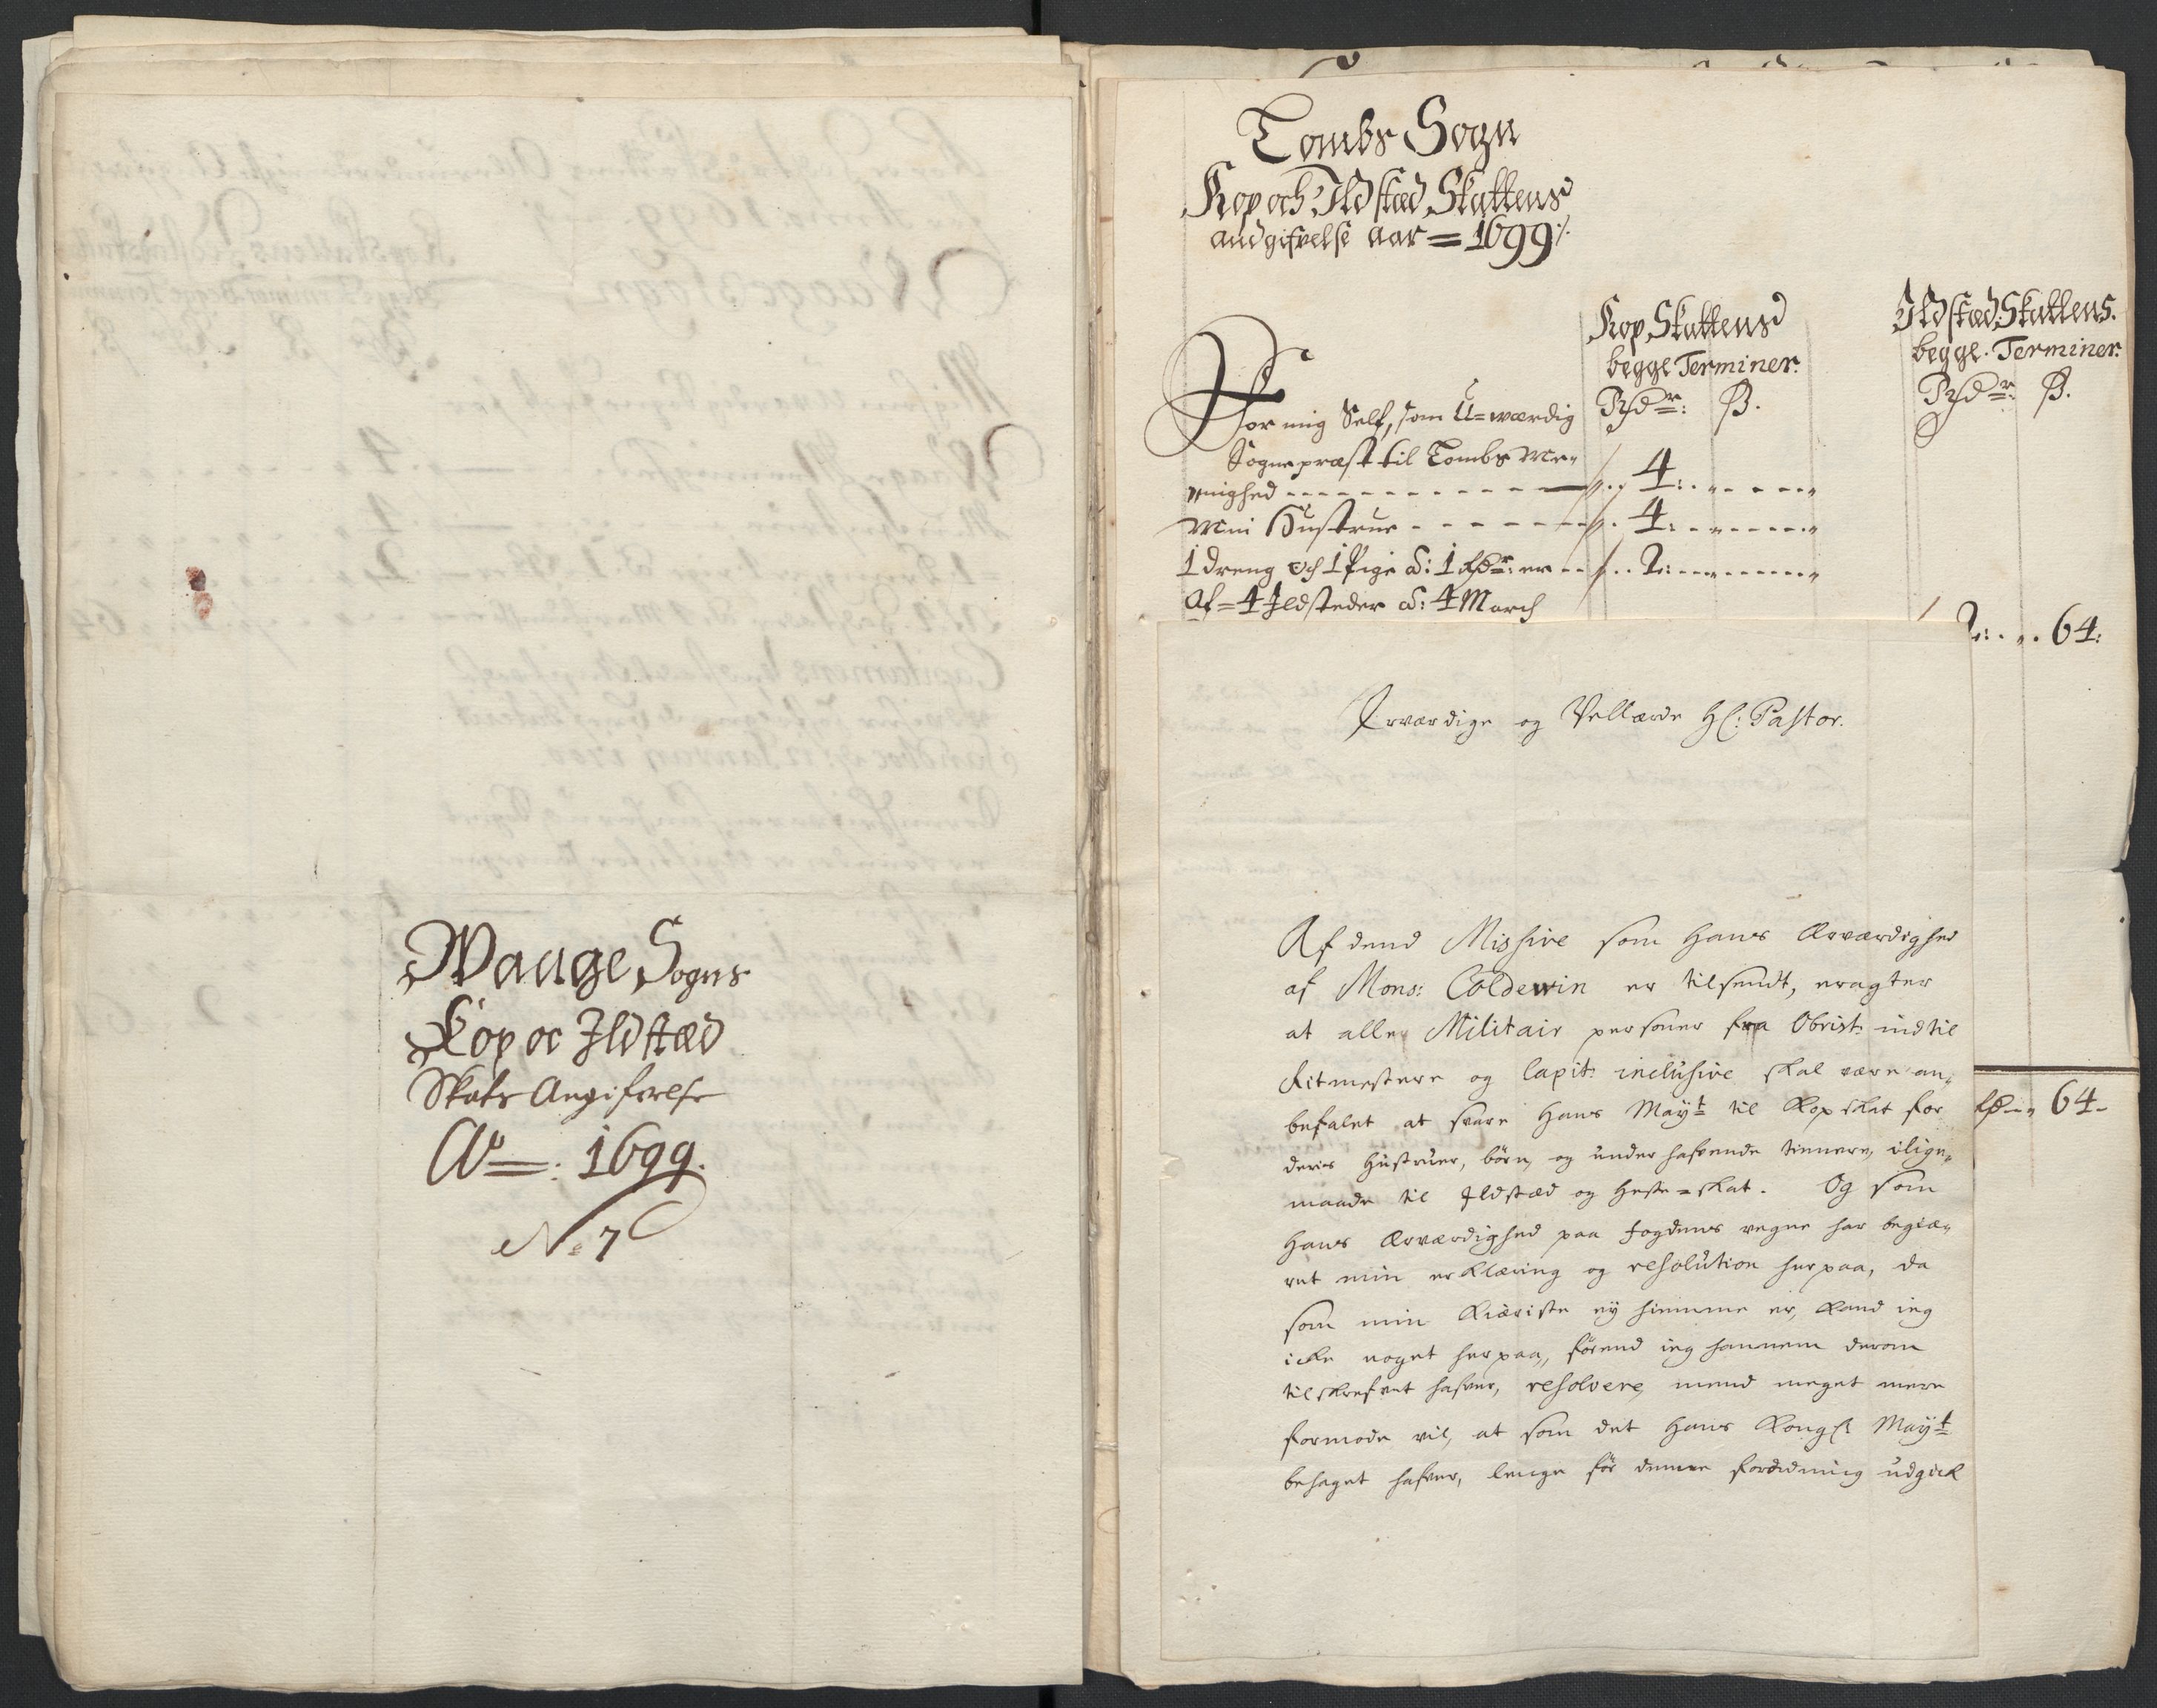 Waage Sogns
Kop oc Ildstæd
Skats Angifvelse
Ao: 1699.
No 7
Tombs Sogn
Kop och Ildstæd Skattens
andgifvelse aar = 1699 ./.
Kop Skattens
begge Terminer.
Rjxdr: ß.
Ildstæd Skattens.
begge Terminer.
Rjxdr: ß.
For mig Self, som U=værdig
Sognepræst til Tombs Me=
nighed - - - 4:
Min Hustrue - - - 4:
1 Dreng och 1 Pige à: 1 Rdr: er - - 2:
Af = 4 Ildsteder à: 4 March
2: 64:
Erværdige og Vellærde Hr: Pastor.
Af dend Missive som Hans Ærværdighed
af Mons: Coldewin er tilsendt, eragter
at alle Militair personer fra Obrist: indtil
Ritmestere og Capit: inclusive skal være an,
befalet at svare Hans Mayt til Kopskat for
deris Hustruer, börn, og underhafvende tienere, ilige,
maade til Ildstæd og Heste=skat. Og som
Hans Ærværdighed paa fogdens vegne har begiæ,
ret min erklæring og resolution herpaa, da
som min Kiæriste ey hiemme er, kand ieg
icke noget herpaa, förend ieg hannem derom
tilskrefvet hafver, resolvere, mend meget mere
formode vil, at som det Hans Kongl Mayt
behaget hafver, lenge för denne forordning udgick
64-